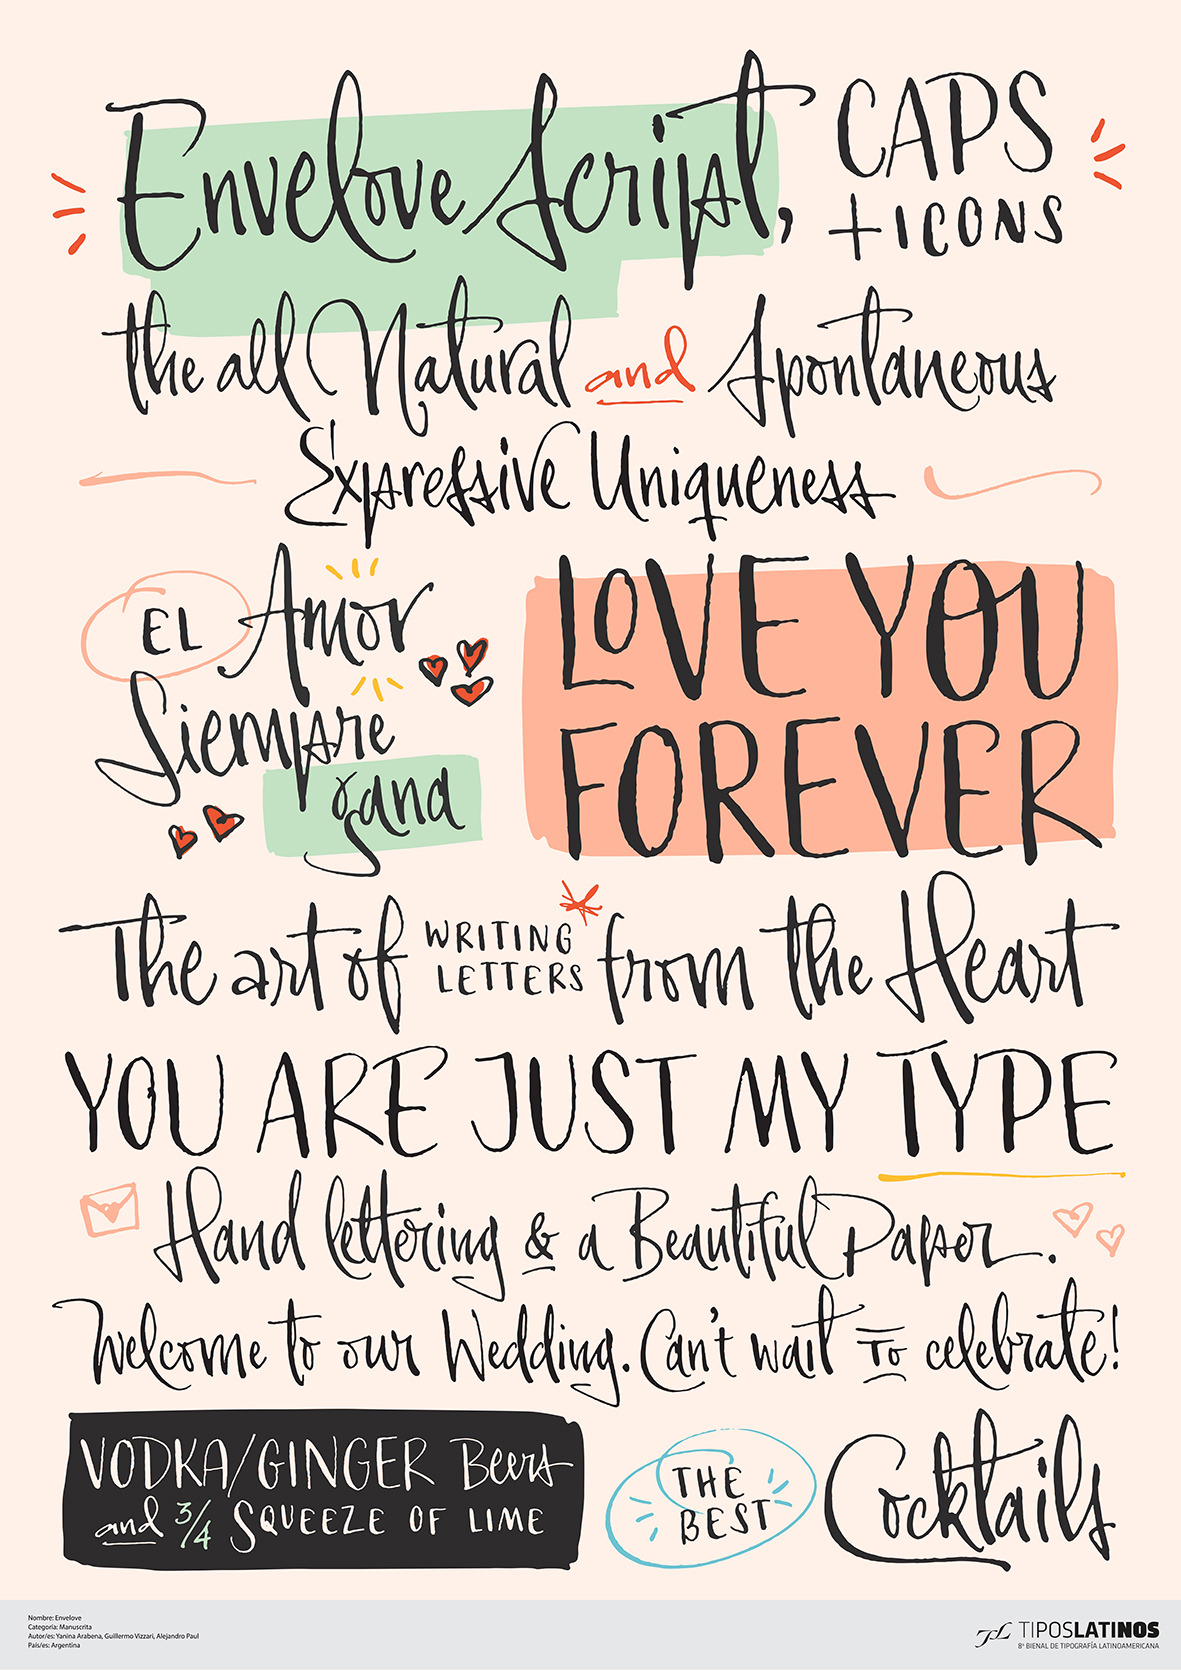 Envelove Script, CAPS
+ ICONS
the all Natural and Spontaneous
Expressive Uniqueness
EL Amor
Siempre
gana
LOVE YOU
FOREVER
The art of WRITING LETTERS from the Heart
YOU ARE JUST MY TYPE
Hand lettering & a Beautiful Paper.
Welcome to our Wedding. Can't wait To celebrate!
VODKA/GINGER Beers
and 3/4 SQUEEZE OF LIME
THE
BEST
Cocktails
Nombre: Envelove
Categoría: Manuscrita
Autor/es: Yanina Arabena, Guillermo Vizzari, Alejandro Paul
País/es: Argentina
TL TIPOSLATINOS
8ª BIENAL DE TIPOGRAFÍA LATINOAMERICANA